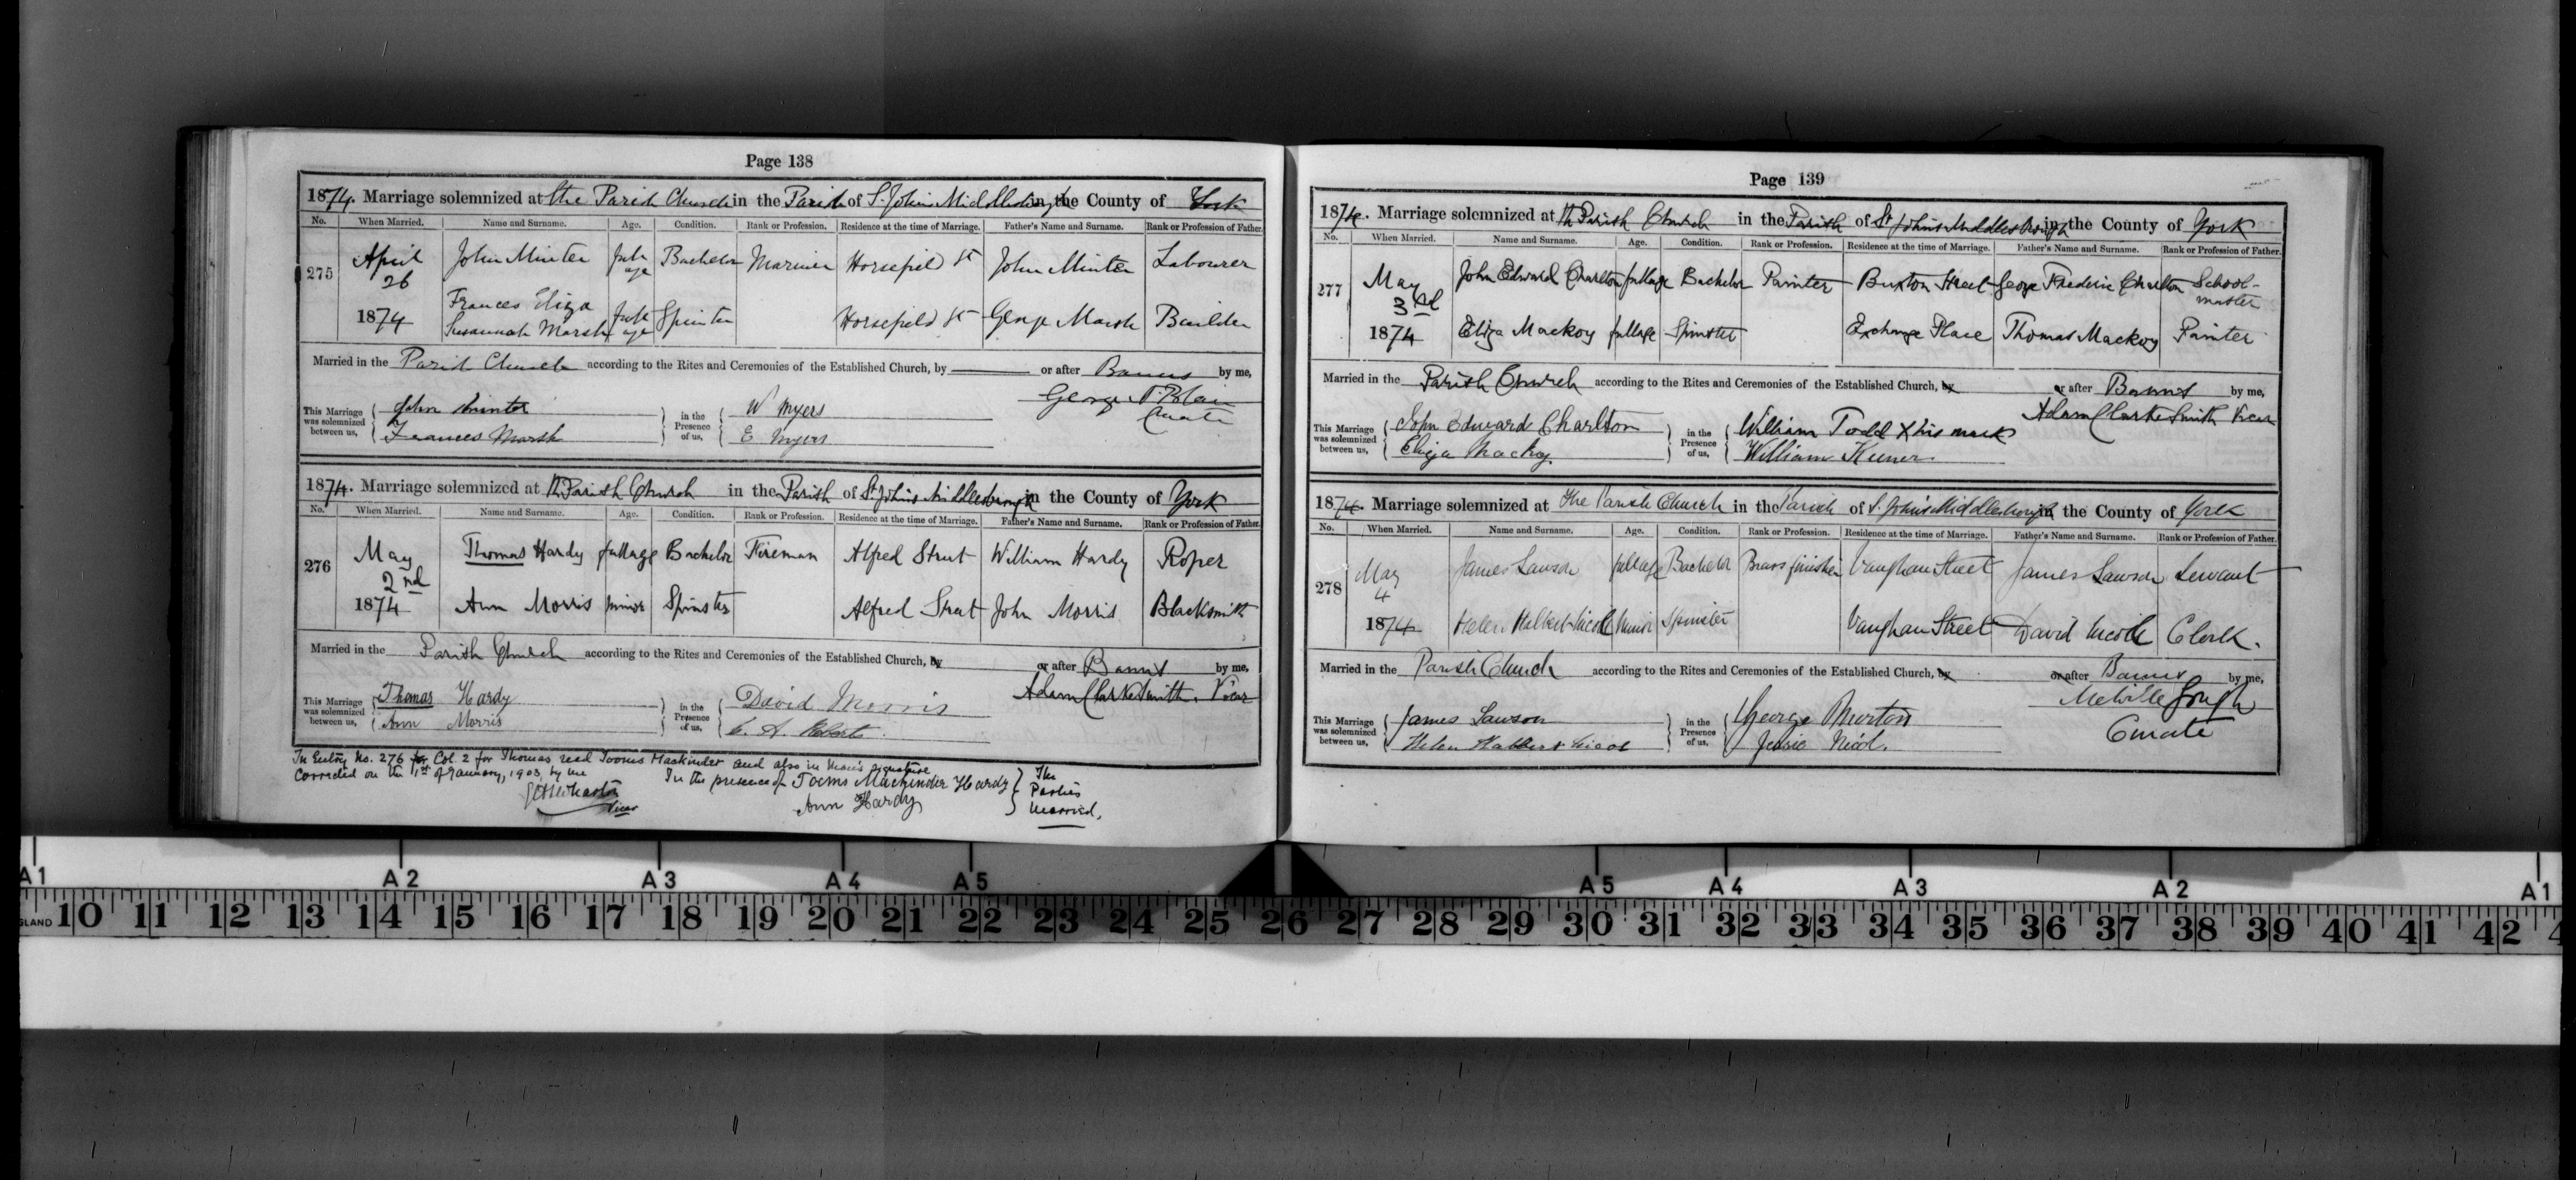 Page 138
1874. Marriage solemnized at the Parish Church in the Parish of St. Johns Middlesbrough in the County of York
No. When Married. Name and Surname. Age. Condition. Rank or Profession. Residence at the time of Marriage. Father's Name and Surname. Rank or Profession of Father.
275 April 26 John Minter full age Bachelor Mariner Horsefield St John Minter Labourer
1874 Frances Eliza Susannah Marsh full age Spinster Horsefield St George Marsh Builder
Married in the Parish Church according to the Rites and Ceremonies of the Established Church, by or after Banns by me,
George Blair
Curate
This Marriage was solemnized between us, John Minter in the Presence of us, W Myers
Frances Marsh E Myers
1874. Marriage solemnized at the Parish Church in the Parish of St Johns Middlesbrough in the County of York
No. When Married. Name and Surname. Age. Condition. Rank or Profession. Residence at the time of Marriage. Father's Name and Surname. Rank or Profession of Father.
276 May 2nd Thomas Hardy full age Bachelor Fireman Alfred Street William Hardy Roper
1874 Ann Morris minor Spinster Alfred Street John Morris Blacksmith
Married in the Parish Church according to the Rites and Ceremonies of the Established Church, by or after Banns by me,
Adam Clarke Smith. Vicar
This Marriage was solemnized between us, Thomas Hardy in the Presence of us, David Morris
Ann Morris C. A. Roberts
In Entry No. 276 for Col. 2 for Thomas read Tooms Mackinder and also in Man's signature
Corrected on the 1st of January, 1903, by me In the presence of Tooms Mackinder Hardy The
Vicar Ann Hardy Parties
Married.
Page 139
1874. Marriage solemnized at the Parish Church in the Parish of St Johns Middlesbrough in the County of York
No. When Married. Name and Surname. Age. Condition. Rank or Profession. Residence at the time of Marriage. Father's Name and Surname. Rank or Profession of Father.
277 May 3rd John Edward Charlton full age Bachelor Painter Buxton Street George Frederic Charlton School-master
1874 Eliza Mackoy full age Spinster Exchange Place Thomas Mackoy Painter
Married in the Parish Church according to the Rites and Ceremonies of the Established Church, by or after Banns by me,
Adam Clarke Smith Vicar
This Marriage was solemnized between us, John Edward Charlton in the Presence of us, William Todd X his mark
Eliza Mackoy William
1874. Marriage solemnized at the Parish Church in the Parish of St. Johns Middlesbrough in the County of York
No. When Married. Name and Surname. Age. Condition. Rank or Profession. Residence at the time of Marriage. Father's Name and Surname. Rank or Profession of Father.
278 May 4 James Lawson full age Bachelor Brass finisher Vaughan Street James Lawson Servant
1874 Helen Halkett Nicoll Minor Spinster Vaughan Street David Nicoll Clerk.
Married in the Parish Church according to the Rites and Ceremonies of the Established Church, by or after Banns by me,
Melville Gough
Curate
This Marriage was solemnized between us, James Lawson in the Presence of us, George Murton
Helen Halkett Nicol Jessie Nicol.
A1 A2 A3 A4 A5 A5 A4 A3 A2 A1
GLAND 10 11 12 13 14 15 16 17 18 19 20 21 22 23 24 25 26 27 28 29 30 31 32 33 34 35 36 37 38 39 40 41 42 4